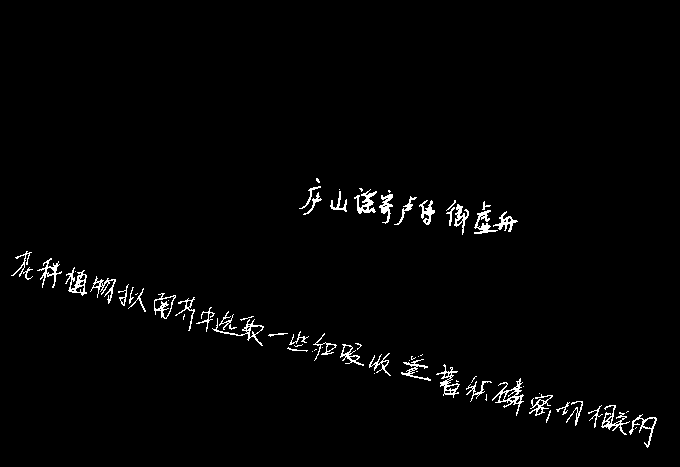 庐山谣寄卢侍御虚舟
花科植物拟南芥中选取一些和吸收并蓄积磷密切相关的